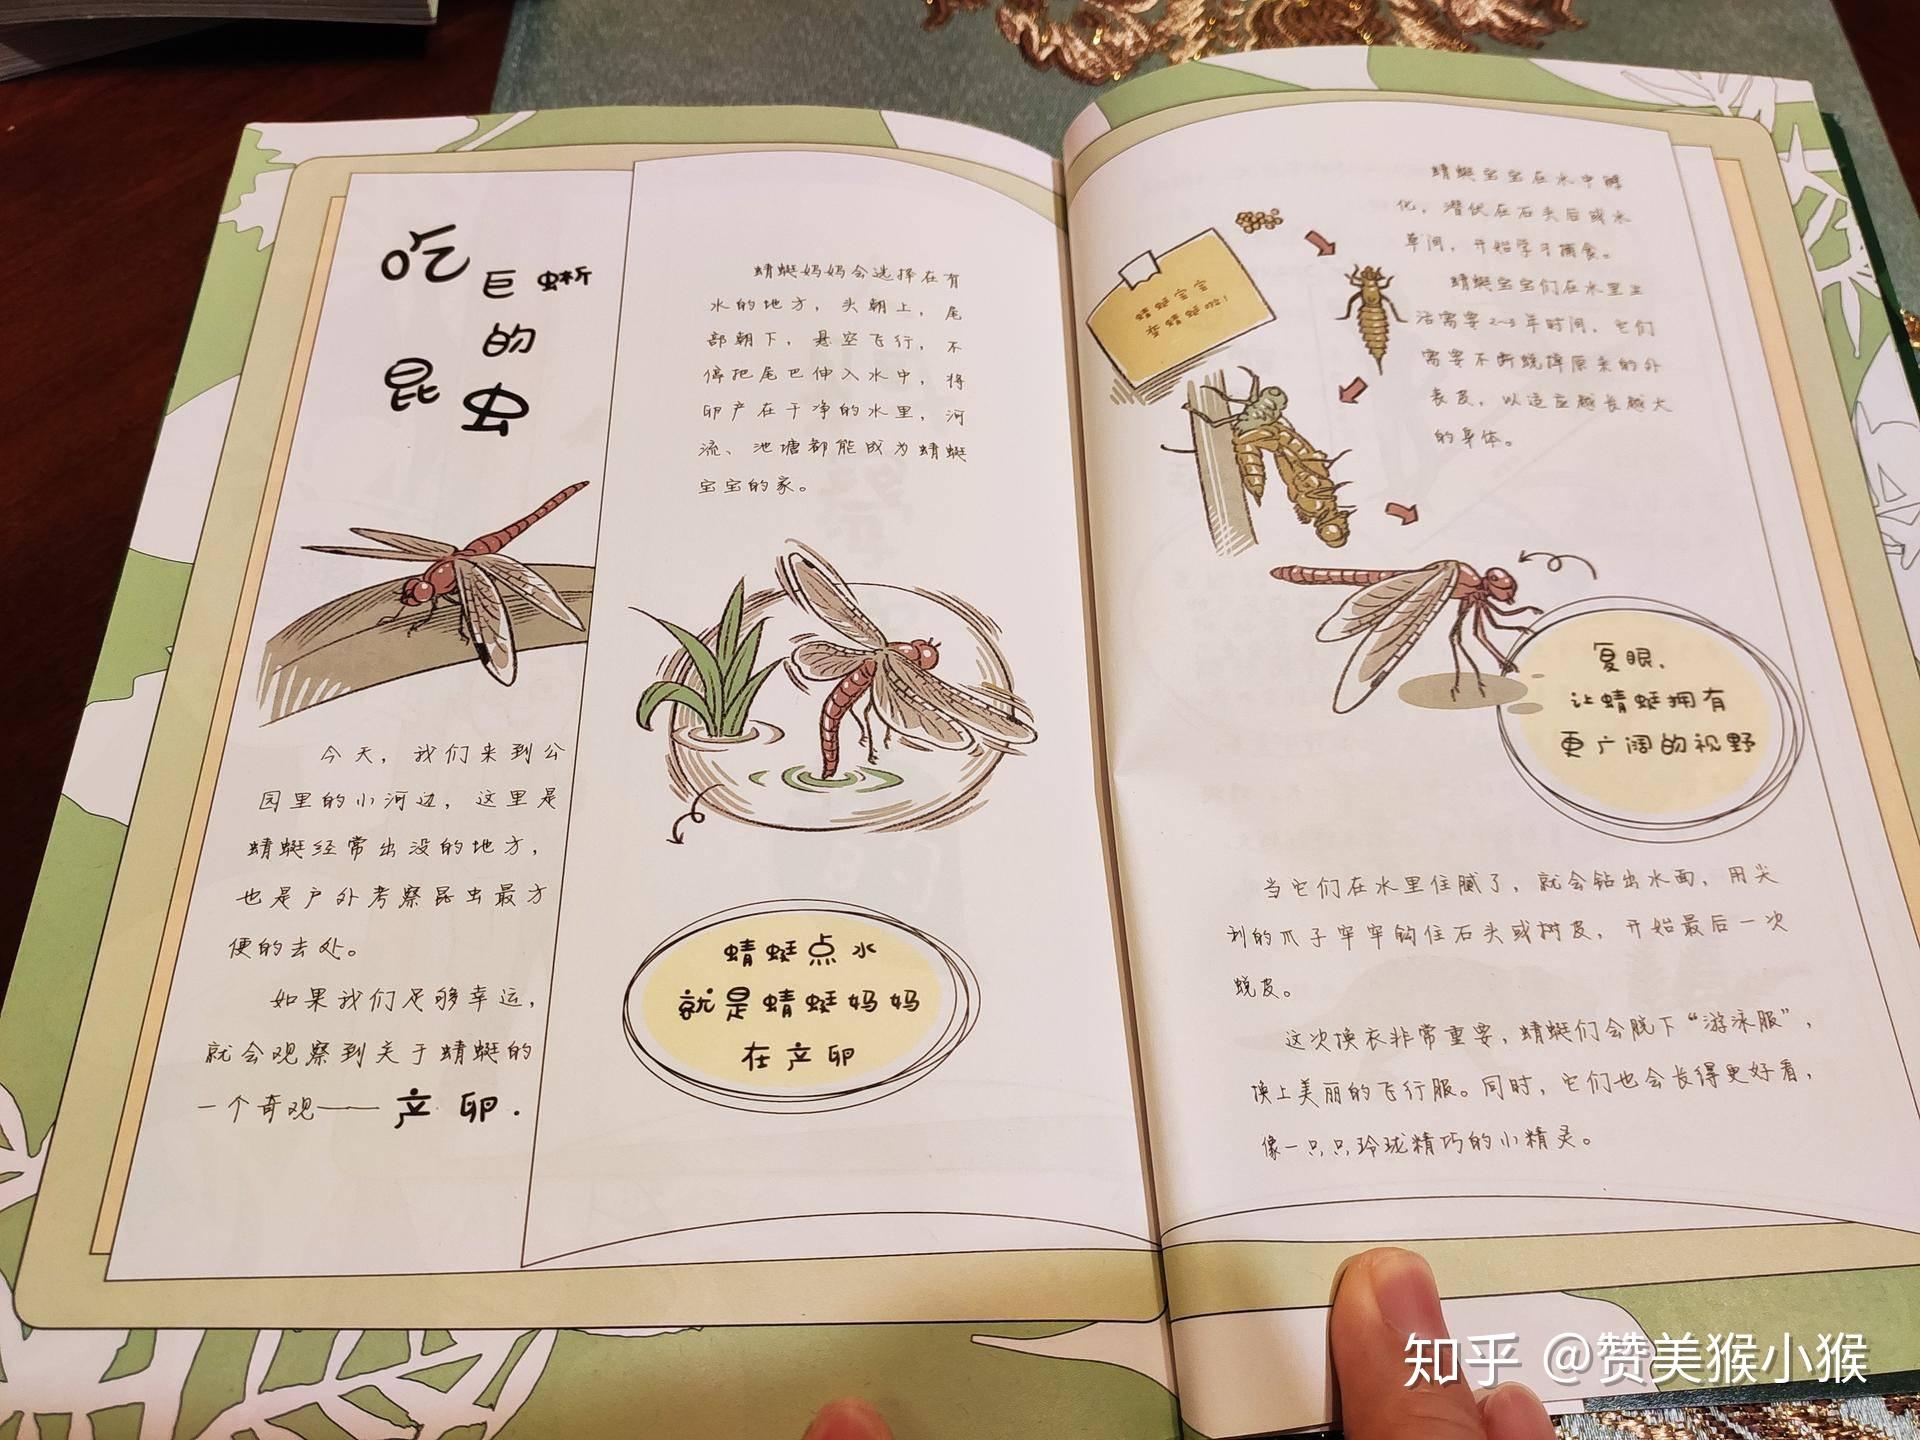 吃巨蜥
的
昆虫
今天，我们来到公
园里的小河边，这里是
蜻蜓经常出没的地方，
也是户外考察昆虫最方
便的去处。
如果我们足够幸运，
就会观察到关于蜻蜓的
一个奇观——产卵.
蜻蜓妈妈会选择在有
水的地方，头朝上，尾
部朝下，悬空飞行，不
停把尾巴伸入水中，将
卵产在干净的水里，河
流、池塘都能成为蜻蜓
宝宝的家。
蜻蜓点水
就是蜻蜓妈妈
在产卵
蜻蜓宝宝
变蜻蜓啦！
蜻蜓宝宝在水中孵
化，潜伏在石头后或水
草间，开始学习捕食。
蜻蜓宝宝们在水里生
活需要2~3年时间，它们
需要不断蜕掉原来的外
表皮，以适应越长越大
的身体。
复眼，
让蜻蜓拥有
更广阔的视野
当它们在水里住腻了，就会钻出水面，用尖
利的爪子牢牢钩住石头或树皮，开始最后一次
蜕皮。
这次换衣非常重要，蜻蜓们会脱下“游泳服”，
换上美丽的飞行服。同时，它们也会长得更好看，
像一只只玲珑精巧的小精灵。
知乎 @赞美猴小猴